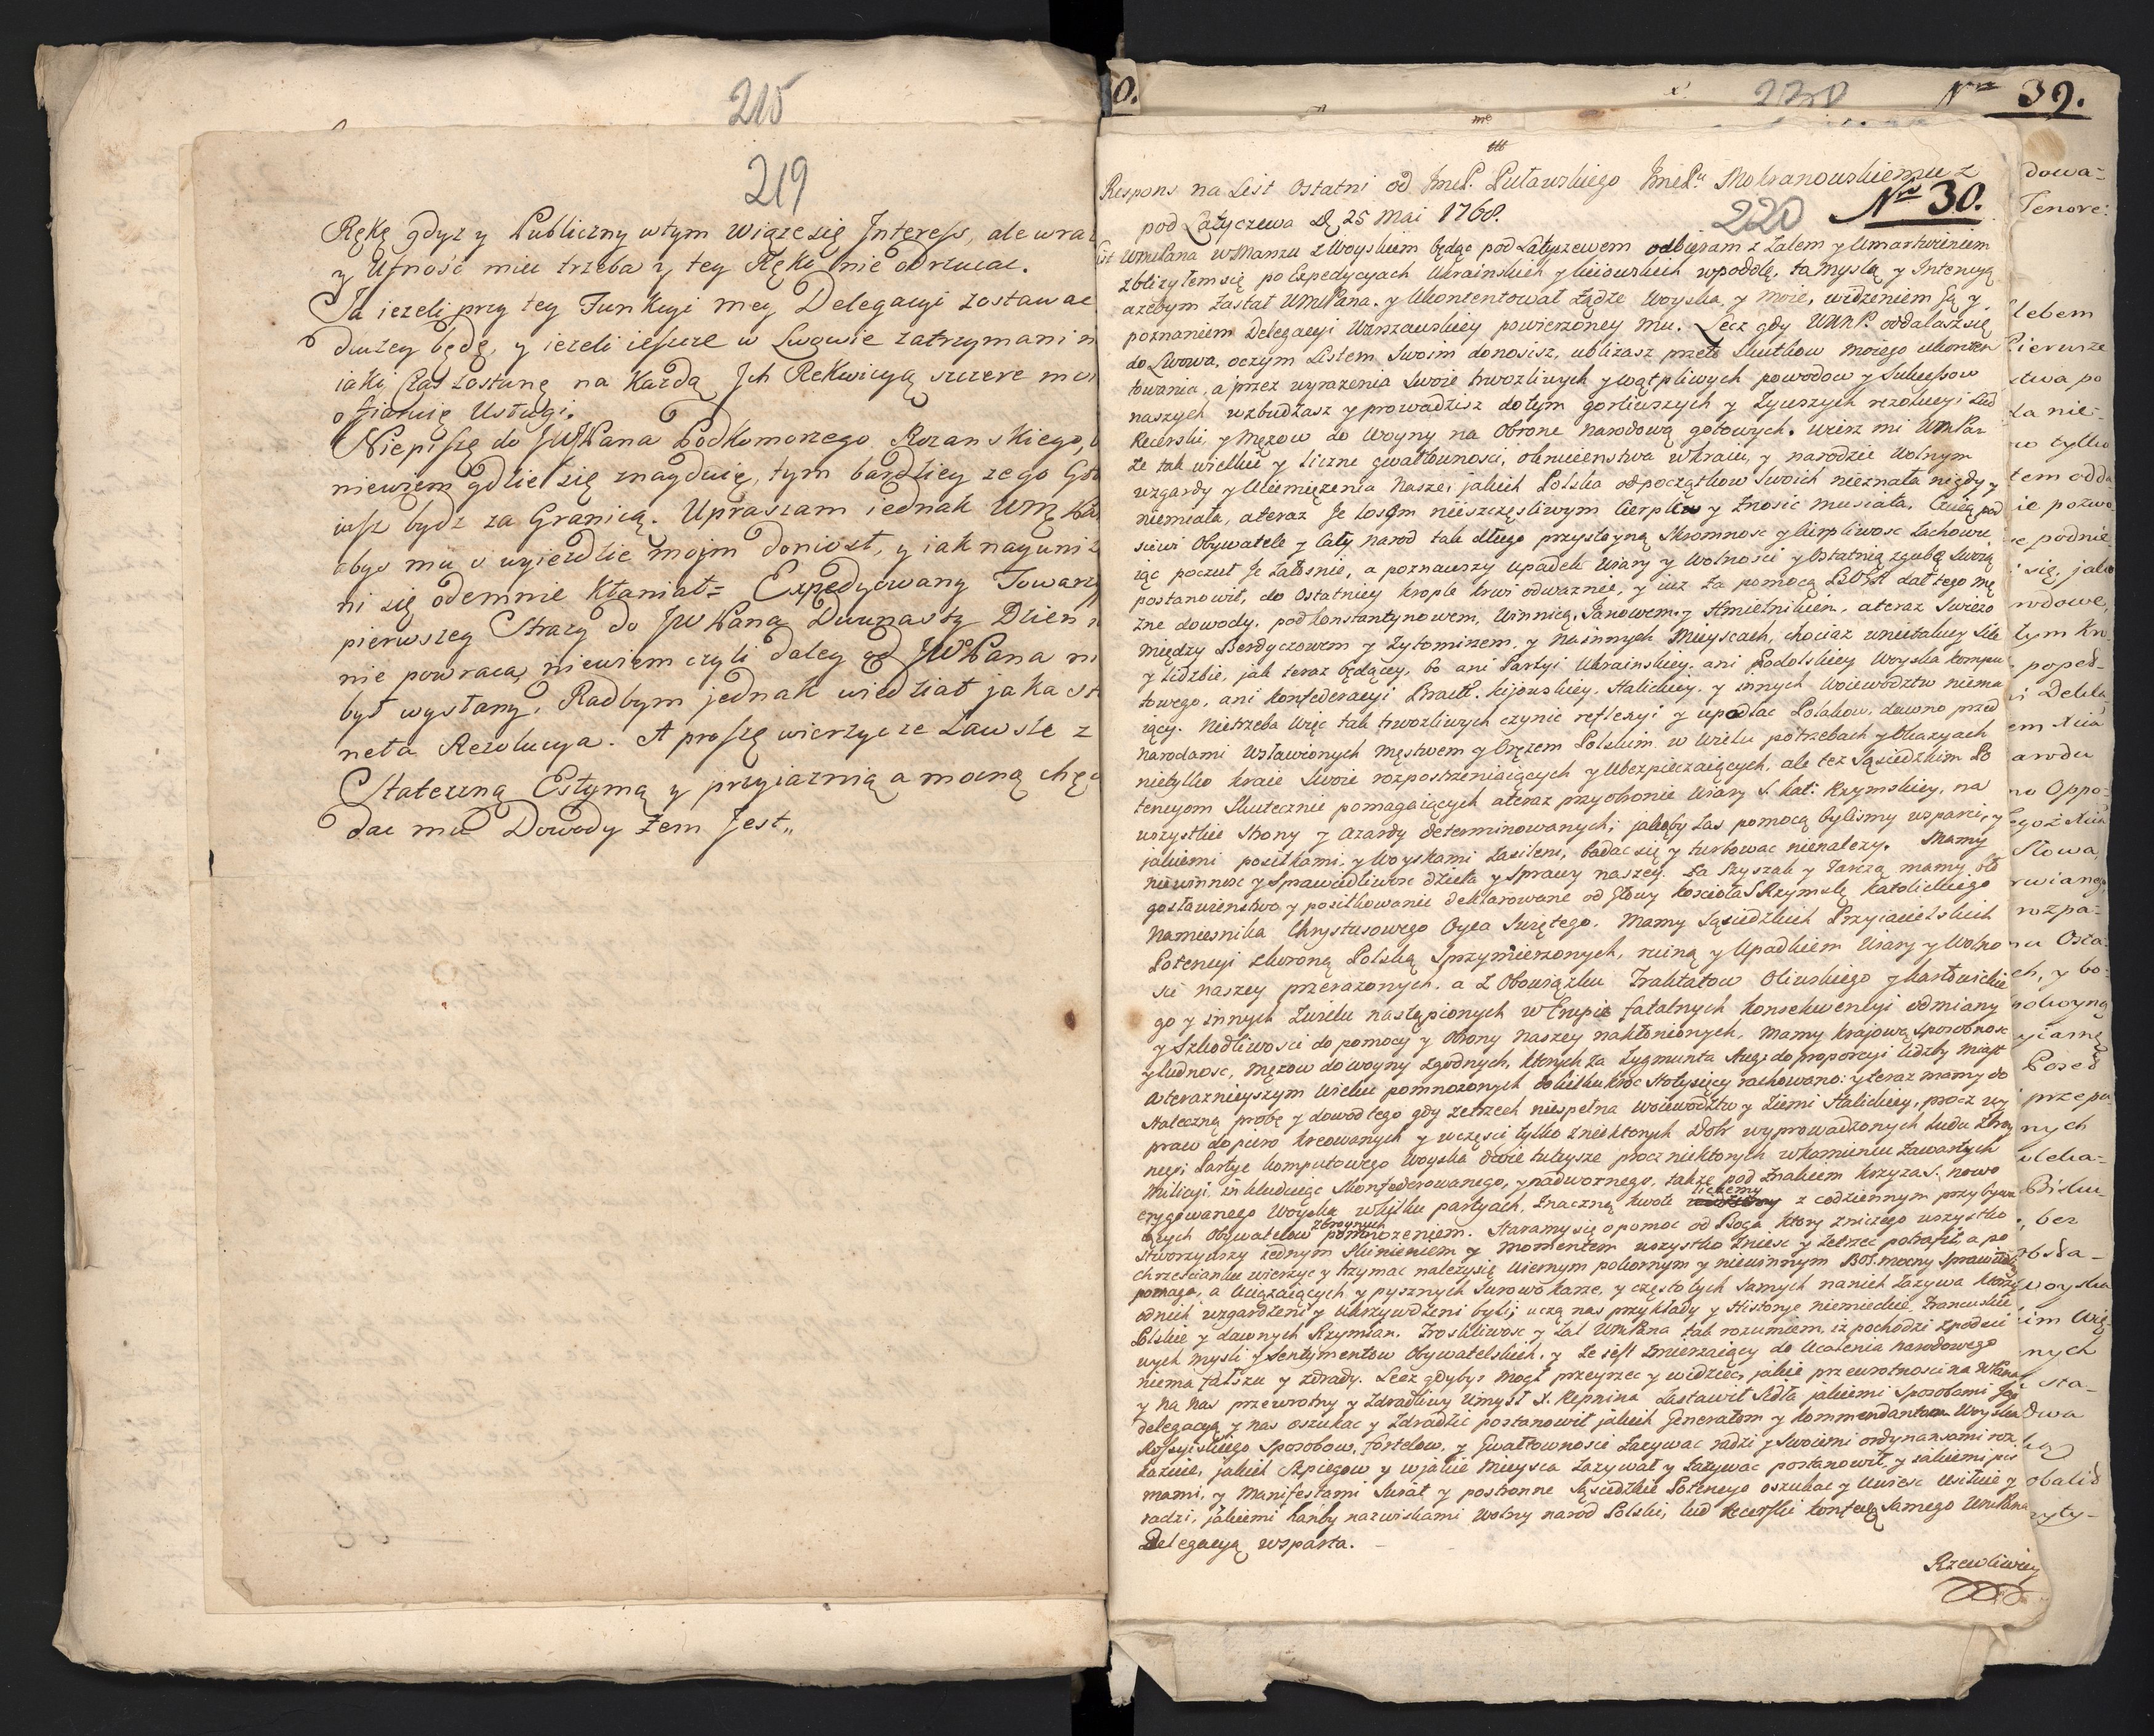 215
219
Rękę gdyz y Publiczny wtym wiąze się Interess, ale wraz
y Ufność miec trzeba y tey Ręki nie odrzucac.
Ja iezeli przy tey Funkcyi mey Delegacyi zostawac
dłuzey będę, y iezeli ieszcze w Lwowie zatrzymani
iaki czas zostanę na kazdą Jch Rekwizycyą szczere me
ofiaruię Usługi.
Niepiszę do JWPana Podkomorzego Rozanskiego,
niewiem gdzie się znayduie, tym bardziey ze go
bydz za Granicą. Upraszam iednak
abys mu o wyiezdzie moim doniosł, y iak nayuni
ni się odemnie kłaniał= Expedyowany Towarzy
pierwszey Strazy do JWPana Dwunasty Dzien
nie powraca, niewiem czyli daley od JWPana
był wysłany. Radbym jednak wiedział jaka
neta Rezolucya. A proszę wierzyc ze zawsze z
Stateczną Estymą y przyiaznią a mocną chęc
dac mu Dowody zem Jest„
0.
220
Nro 39.
Respons na List Ostatni od JmcP. Puławskiego JmcPu Mokranowskiemu z
pod Latyczewa D. 25 Mai 1768.
220 Nro 30.
UmcPana w Marszu z Woyskiem będąc pod Latyczewem odbieram z zalem y Umartwieniem
zblizyłem się po Expedycyach Ukrainskich y kiiowskich w podole, ta myslą y Intencyą
azebym zastał UmPana. y Ukontentował ządze Woyska, y moie, widzeniem
poznaniem Delegacyi Warszawskiey powierzoney mu. Lecz gdy UmP. oddalasz się
do Lwowa, o czym Listem Swoim donosisz, ublizasz przeto Skutkow moiego ukonten
towania, a przez wyrazenia Swoie trwozliwych y wątpliwych powodow y Sukcessow
naszych wzbudzasz y prowadzisz do tym gorliwszych y zywszych rezolucyi Lud
Rycerski, y Męzow do Woyny na Obrone Narodową gotowych. wierz mi UmPan
ze tak wielkie y liczne gwałtownosci, okrucienstwa w kraiu, y narodzie Wolnym
wzgardy y Uciemięzenia Nasze, jakich Polska odpoczątkow Swoich nieznała nigdy y
niemiała, a teraz Je losem nieszczęsliwym cierpiec y znosic musiała,
sciwi Obywatele y cały narod tak długo przystoyną Skromnosc y cierpliwosc zachowu
iąc poczuł Je załosnie, a poznawszy upadek Wiary y Wolnosci y Ostatnią zgubę Swoią
postanowił, do Ostatniey krople krwi odwaznie, y iuz za pomocą BOGA dał tego
zne dowody, pod konstantynowem, Winnicą, Janowem, y Kmielnikiem, a teraz Swiezo
między Berdyczowem y Zytomirzem, y na innych Mieyscach, chociaz
y liczbie, jak teraz będącey, bo ani Partyi Ukrainskiey, ani Podolskiey Woyska kompu
towego, ani konfederacyi kijowskiey, Halickiey, y innych Woiewodztw niema
iący. Nietrzeba więc tak trwozliwych czynic reflexyi y upadlac Polakow, dawno przed
Narodami Wsławionych męstwem y Oręzem Polskim w Wielu potrzebach y Okazyach
nietylko kraie Swoie rozpostrzeniaiących y Ubezpieczaiących, ale tez Sąsiedzkim Po
tencyom Skutecznie pomagaiących a teraz przy obronie Wiary S. Kat: Rzymskiey, na
wszystkie Strony y azardy determinowanych; jakąby zas pomocą bylismy wsparci, y
jakiemi posiłkami, y Woyskami zasileni, badac się y turbowac nienalezy. Mamy
niewinnosc y Sprawiedliwosc dzieła y Sprawy naszey. za Szyszak y Tarczą mamy bło
gosławienstwo y posiłkowanie deklarowane od Głowy Kosciola S Rzymsko Katolickiego
Namiesnika Chrystusowego Oyca Swiętego. Mamy Sąsiedzkich Przyiacielskich
Potencyi z koroną Polską Sprzymierzonych, ruiną y Upadkiem Wiary y Wolno
sci naszey przerazonych, a z Obowiązku Traktatow Oliwskiego y karłowickie
go y innych zwielu nastąpionych w Europie fatalnych konsekwencyi odmiany
y Szkodliwosci do pomocy y Obrony Naszey nakłonionych. Mamy krajową Sposobnosc
y ludnosc, męzow do woyny zgodnych, ktorych za Zygmunta Aug: do proporcyi liczby Miast
a terazniejszym wieku pomnozonych do kilkukroc Stotysięcy rachowano: y teraz mamy do
stateczną probę y dowod tego gdy ze trzech niespełna Woiewodztw y Ziemi Halickiey, procz wy
praw dopiero kreowanych y w częsci tylko z niektorych Dobr wyprowadzonych Ludu zbroy
nego; Partye komputowego Woyska dwie tuteysze procz niektorych w Kamiencu zawartych
Milicyi inkluduiąc Skonfederowanego, y nadwornego, takze pod znakiem krzyza S. nowo
erygowanego Woyska w kilku partyach, znaczną kwote liczemy z codziennym przybywa
iących Obywatelow zbroynych pomnozeniem. Staramy się o pomoc od Boga, ktory z niczego wszystko
stworzywszy iednym Skinieniem y momentem wszystko zniesc y zetrzec potrafi, a po
chrzescianku wierzyc y trzymac nalezy się wiernym pokornym y niewinnym BOG mocny Sprawiedli
pomaga, a uciązaiących y pysznych Surowo karze, y często tych Samych na nich zazywa ktorzy
od nich wzgardzeni y ukrzywdzeni byli; uczą nas przykłady y Historye niemieckie, Francuskie
Polskie y dawnych Rzymian. Troskliwosc y zal UmPana tak rozumiem, iz pochodzi z
wych mysli y Sentymentow Obywatelskich, y ze iest zmierzaiący do Ucalenia narodowego
niema fałszu y zdrady. Lecz gdybys mogł przeyrzec y widziec, jakie przewrotnosci na WPana
y na nas przewrotny y zdradliwy Umysł X. Repnina zastawił Sidła jakiemi Sposobami Jego
delegacyą y nas oszukac y zdradzic postanowił jakich Generałom y kommendantom Woyska
Rossyiskiego Sposobow, fortelow, y Gwałtownosci zazywac radzi y Swoiemi ordynansami roz
kazuie, jakich Szpiegow y w jakie Mieysca zazywał y zazywac postanowił, y iakiemi pis
mami, y Manifestami Swiat y postronne Sąsiedzkie Potencye oszukac y Uwiesc usiłuie y
radzi, jakiemi hanby nazwiskami Wolny narod Polski, lud Rycerski Samego UmPana
Delegacyą wsparta.
Rzewliwiey
dowa=
Tenore:
tylko
nych
Słowa,
rozpa=
nych
bez
obalid